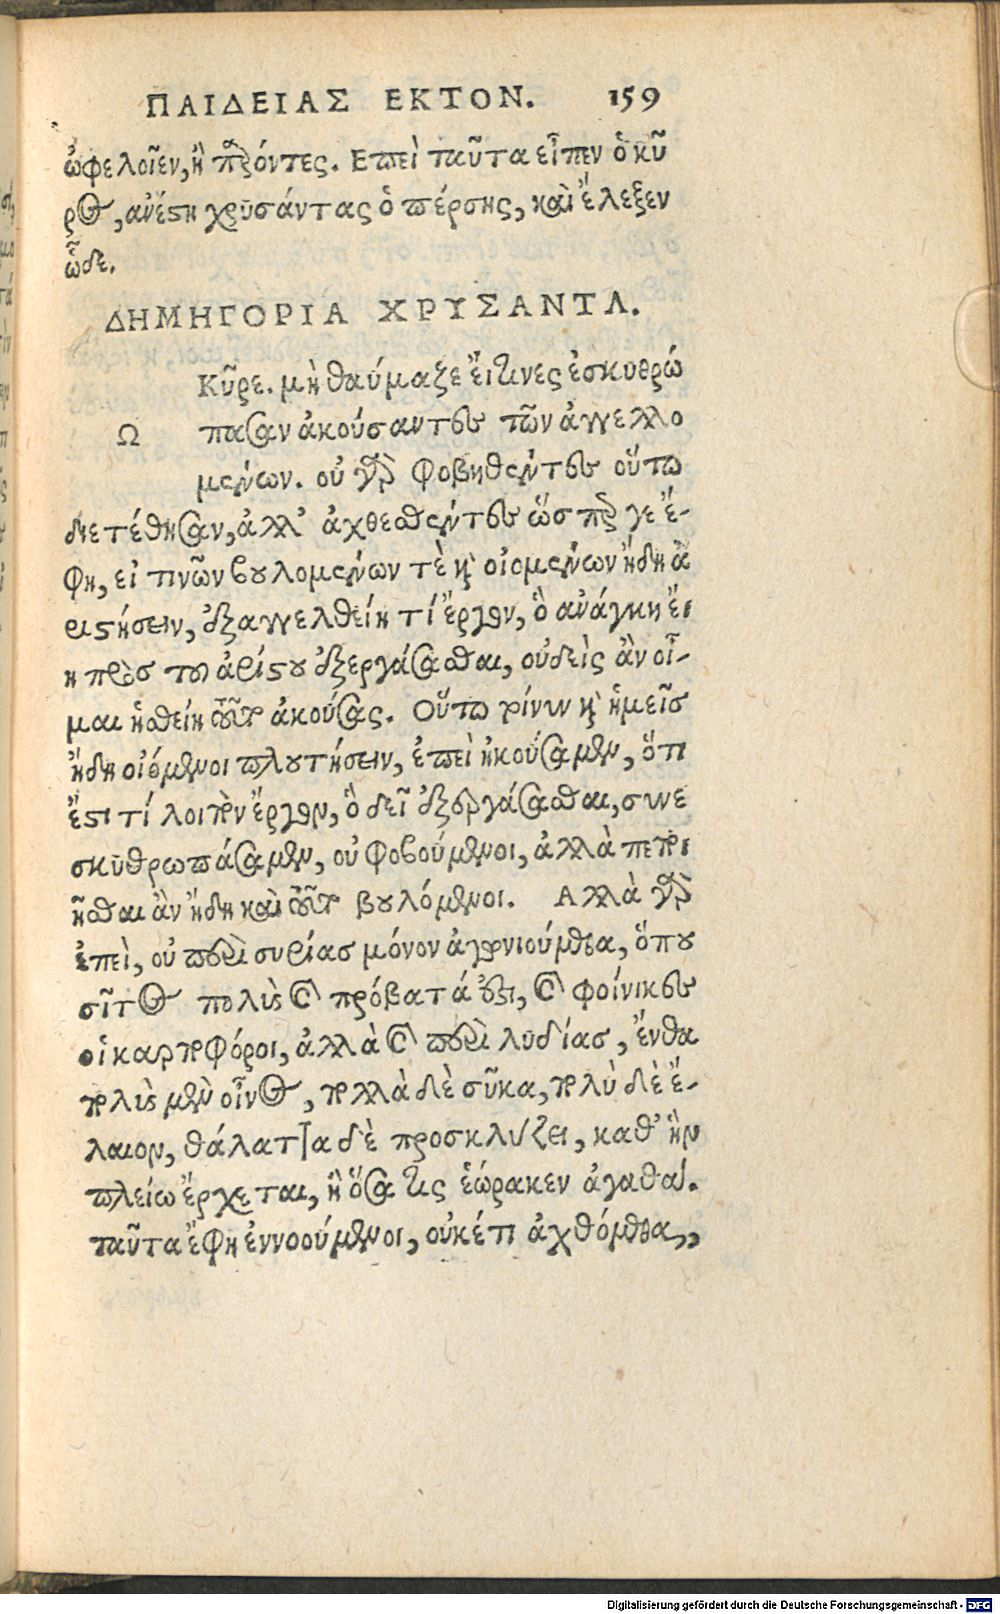 ΠΑΙΔΕΙΑΣ ΕΚΤΟΝ. 159
ὠφελοῖεν, ἢ παρόντες. Επεὶ ταῦτα εἶπεν ὁ κῦ
ρος, ἀνέστη χρυσάντας ὁ πέρσης, καὶ ἔλεξεν
ὧδε.
ΔΗΜΗΓΟΡΙΑ ΧΡΥΣΑΝΤΑ.
Κῦρε. μὴ θαύμαζε εἴ τινες ἐσκυθρώ
Ω πασαν ἀκούσαντες τῶν ἀγγελλο
μένων. οὐ γὰρ φοβηθέντες οὕτω
διετέθησαν, ἀλλ' ἀχθεσθέντες ὥσπερ γε ἔ-
φη, εἰ τινῶν βουλομένων τὲ καὶ οἰομένων ἤδη ἀ
ριστήσειν, ἐξαγγελθείη τί ἔργον, ὃ ἀνάγκη εἴ
η πρὸσ τοῦ ἀρίστου ἐξεργάσασθαι, οὐδεὶς ἂν οἶ-
μαι ἡσθείη τοῦτο ἀκούσας. Οὕτω τοίνυν καὶ ἡμεῖσ
ἤδη οἰόμενοι πλουτήσειν, ἐπεὶ ἠκούσαμεν, ὅτι
ἔστι τί λοιπὸν ἔργον, ὃ δεῖ ἐξεργάσασθαι, συνε
σκυθρωπάσαμεν, οὐ φοβούμενοι, ἀλλὰ πεποι
ῆσθαι ἂν ἤδη καὶ τοῦτο βουλόμενοι. Αλλὰ γὰρ
ἐπεὶ, οὐ περὶ συρίασ μόνον ἀγωνιούμεθα, ὅπου
σῖτος πολὺς καὶ πρόβατά ἐστι, καὶ φοίνικες
οἱ καρποφόροι, ἀλλὰ καὶ περὶ λυδίασ, ἔνθα
πολὺς μὲν οἶνος, πολλὰ δὲ σῦκα, πολὺ δὲ ἔ-
λαιον, θάλαττα δὲ προσκλύζει, καθ' ἣν
πλείω ἔρχεται, ἢ ὅσα τις ἑώρακεν ἀγαθά.
ταῦτα ἔφη ἐννοούμενοι, οὐκέτι ἀχθόμεθα,
Digitalisierung gefördert durch die Deutsche Forschungsgemeinschaft - DFG